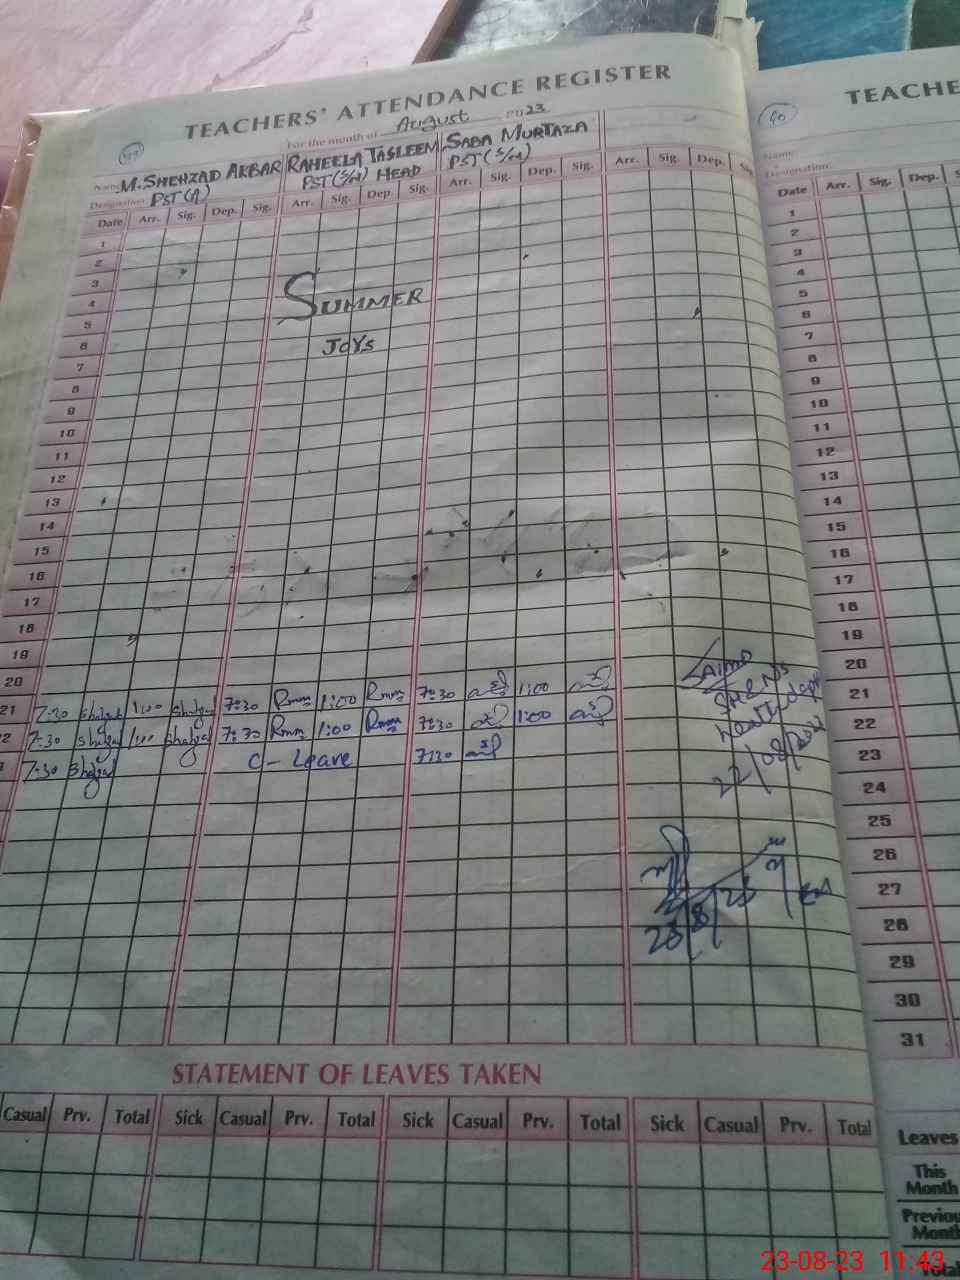 TEACHERS' ATTENDANCE REGISTER
For the month of August 2023
Name M. SHEHZAD AKBAR RAHEELA TASLEEM SABA MURTAZA
Designation: PST (A) PST (S/H) HEAD PST (S/H)
Date Arr. Sig. Dep. Sig. Arr. Sig. Dep. Sig. Arr. Sig. Dep. Sig. Arr. Sig. Dep. Sig.
1
2
3
4
SUMMER
5
6
JOYS
7
8
9
10
11
12
13
14
15
16
17
18
19
20
21 7:30 1:00 7:30 Rmm 1:00 Rmm 7:30 1:00
7:30 1:00 7:30 Rmm 1:00 Rmm 7:30 1:00
7:30 C - Leave 7:30
SH&NS
22/08/2023
23/8/23
STATEMENT OF LEAVES TAKEN
Casual Prv. Total Sick Casual Prv. Total Sick Casual Prv. Total Sick Casual Prv. Total
40
TEACHE
Name:
Designation:
Date Arr. Sig. Dep.
1
2
3
4
5
6
7
8
9
10
11
12
13
14
15
16
17
18
19
20
21
22
23
24
25
26
27
28
29
30
31
Leaves
This
Month
Previou
Month
Total
23-08-23 11:43